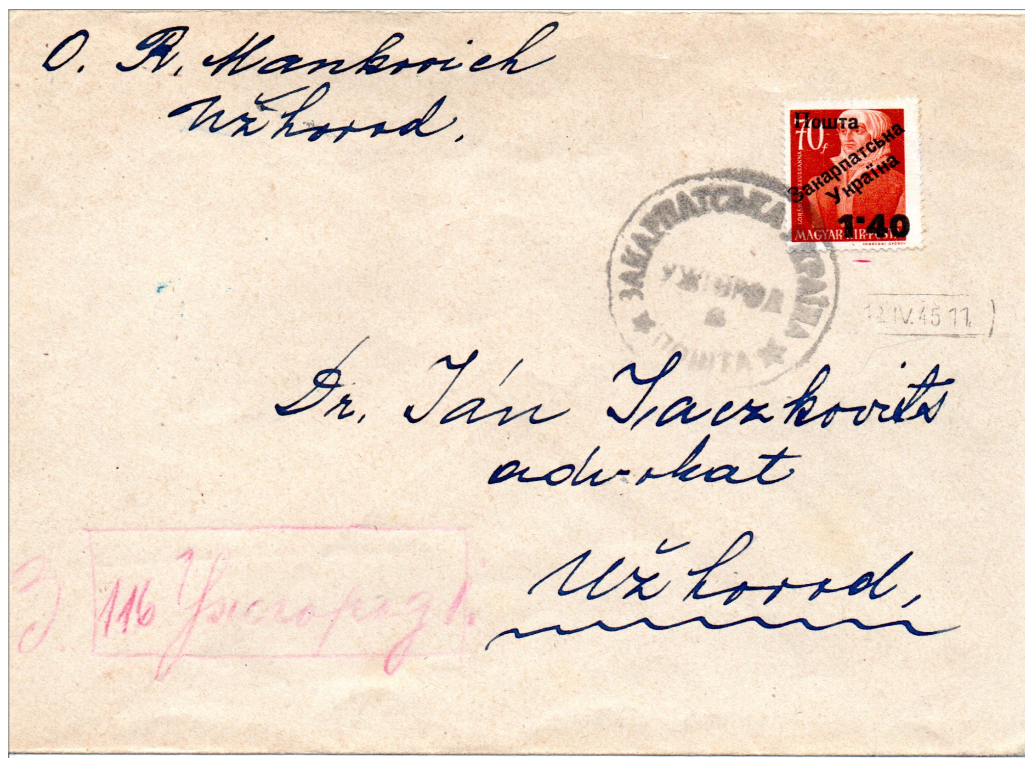 O. R. Mankovich
Užhorod.
Пошта
70f
Закарпатська
Україна
1·40
MAGYAR KIR. POSTA
ЗАКАРПАТСЬКА УКРАЇНА
УЖГОРОД
ПОШТА
12 IV. 45 11
Dr. Ján Jaczkovits
advokat
Užhorod,
З. 116 Ужгород 1.